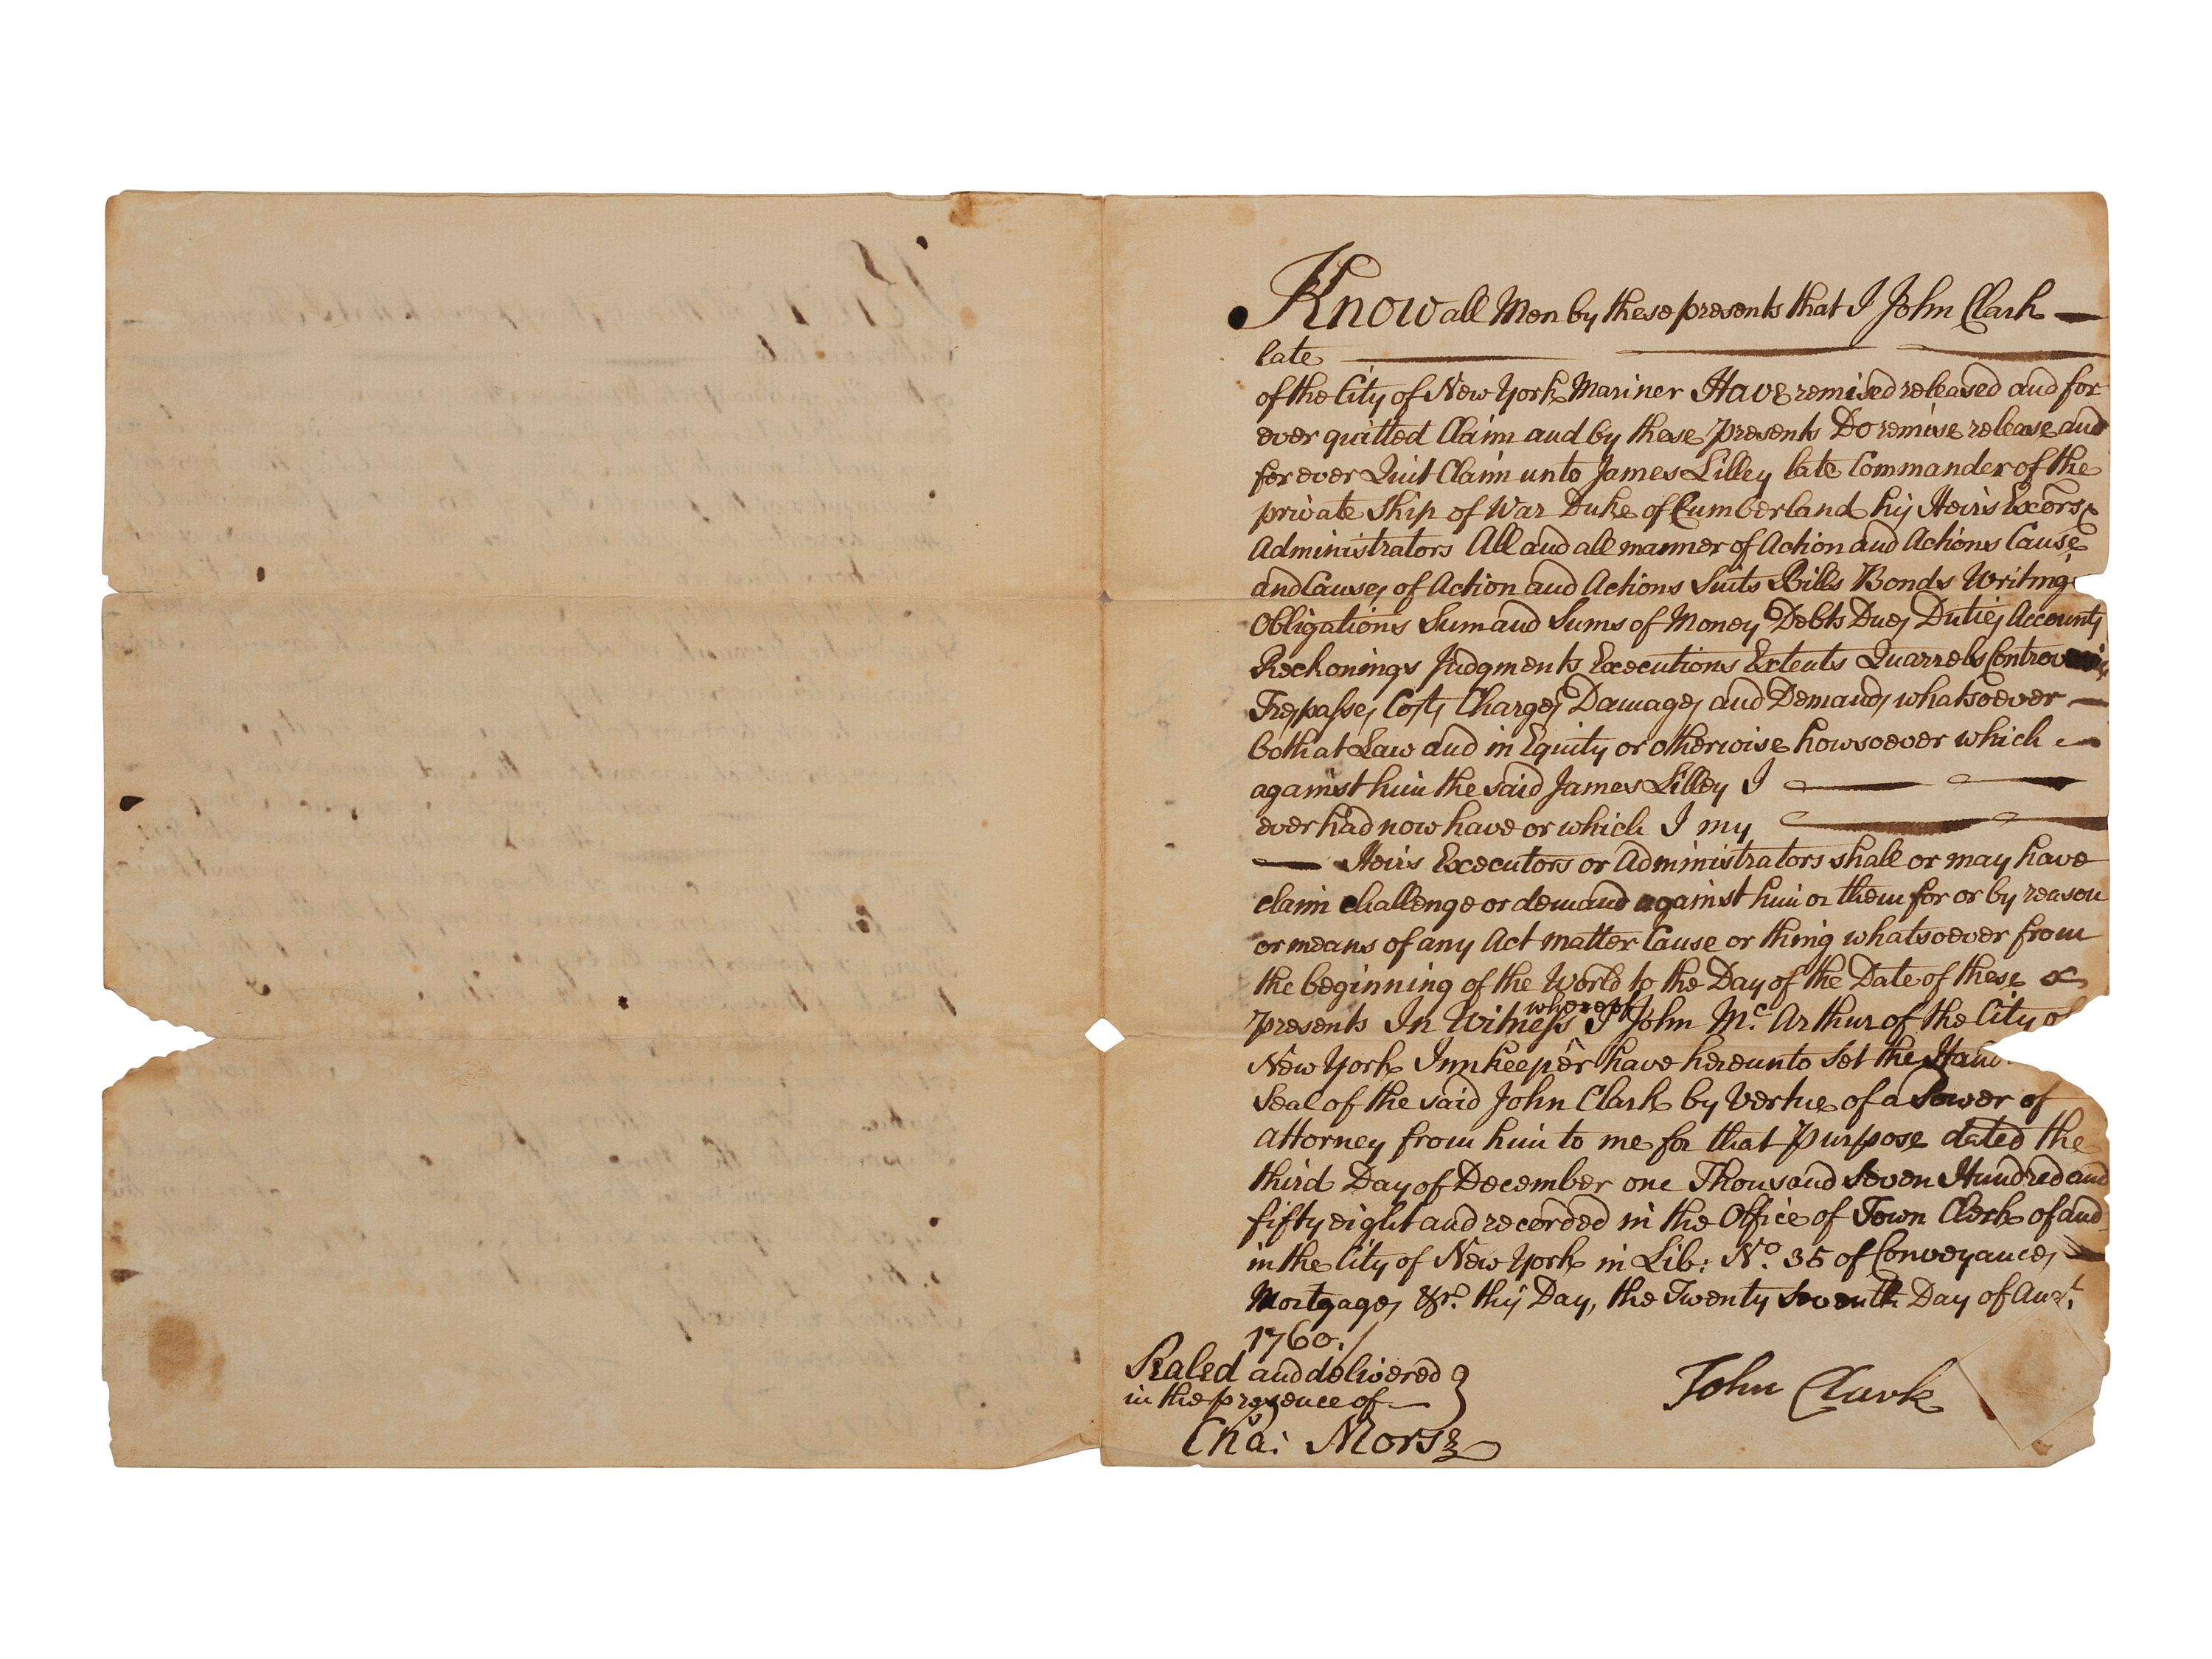 Know all Men by these presents that I John Clark
late
of the City of New York Mariner Have remised released and for
ever quitted Claim and by these Presents Do remise release and
for ever Quit Claim unto James Lilley late Commander of the
private Ship of War Duke of Cumberland his Heirs Excors &
Administrators All and all manner of Action and Actions Cause
and Causes of Action and Actions Suits Bills Bonds Writings
Obligations Sum and Sums of Money Debts Dues Duties Accounts
Reckonings Judgments Executions Extents Quarrels
Trespasses Costs Charges Damages and Demands whatsoever
both at Law and in Equity or otherwise howsoever which
against him the said James Lilley I
ever had now have or which I my
Heirs Executors or Administrators shall or may have
claim challenge or demand against him or them for or by reason
or means of any Act matter Cause or thing whatsoever from
the beginning of the World to the Day of the Date of these
whereof
presents In Witness I John Mc. Arthur of the City of
New York Innkeeper have hereunto set the Hand
Seal of the said John Clark by Vertue of a Power of
Attorney from him to me for that Purpose dated the
third Day of December one Thousand Seven Hundred and
fifty eight and recorded in the Office of Town Clerk of and
in the City of New York in Lib: No. 35 of Conveyances
Mortgages &c. this Day, the Twenty Seventh Day of Augt.
1760./
Sealed and delivered
in the presence of
John Clark
Cha: Morse